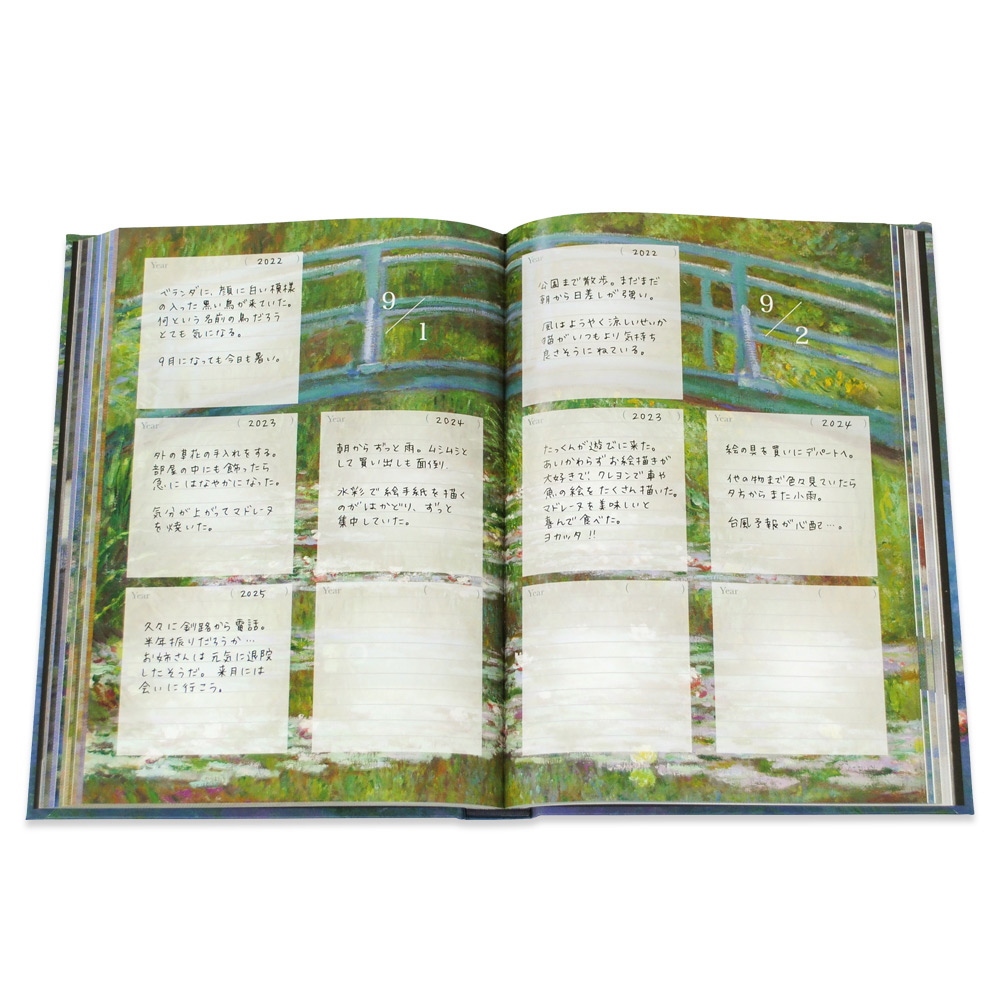 Year ( 2022 )
ベランダに、顔に白い模様
の入った黒い鳥が来ていた。
何という名前の鳥だろう
とても気になる。
9月になっても今日も暑い。
9/1
Year ( 2023 )
外の草花の手入れをする。
部屋の中にも飾ったら
急にはなやかになった。
気分が上がってマドレーヌ
を焼いた。
Year ( 2024 )
朝からずっと雨。ムシムシと
して買い出しも面倒。
水彩で絵手紙を描く
のがはかどり、ずっと
集中していた。
Year ( 2025 )
久々に釧路から電話。
半年振りだろうか…
お姉さんは元気に退院
したそうだ。来月には
会いに行こう。
Year ( )
Year ( 2022 )
公園まで散歩。まだまだ
朝から日差しが強い。
風はようやく涼しいせいか
猫がいつもより気持ち
良さそうにねている。
9/2
Year ( 2023 )
たっくんが遊びに来た。
あいかわらずお絵描きが
大好きで、クレヨンで車や
魚の絵をたくさん描いた。
マドレーヌを美味しいと
喜んで食べた。
ヨカッタ!!
Year ( 2024 )
絵の具を買いにデパートへ。
他の物まで色々見ていたら
夕方からまた小雨。
台風予報が心配で…。
Year ( )
Year ( )